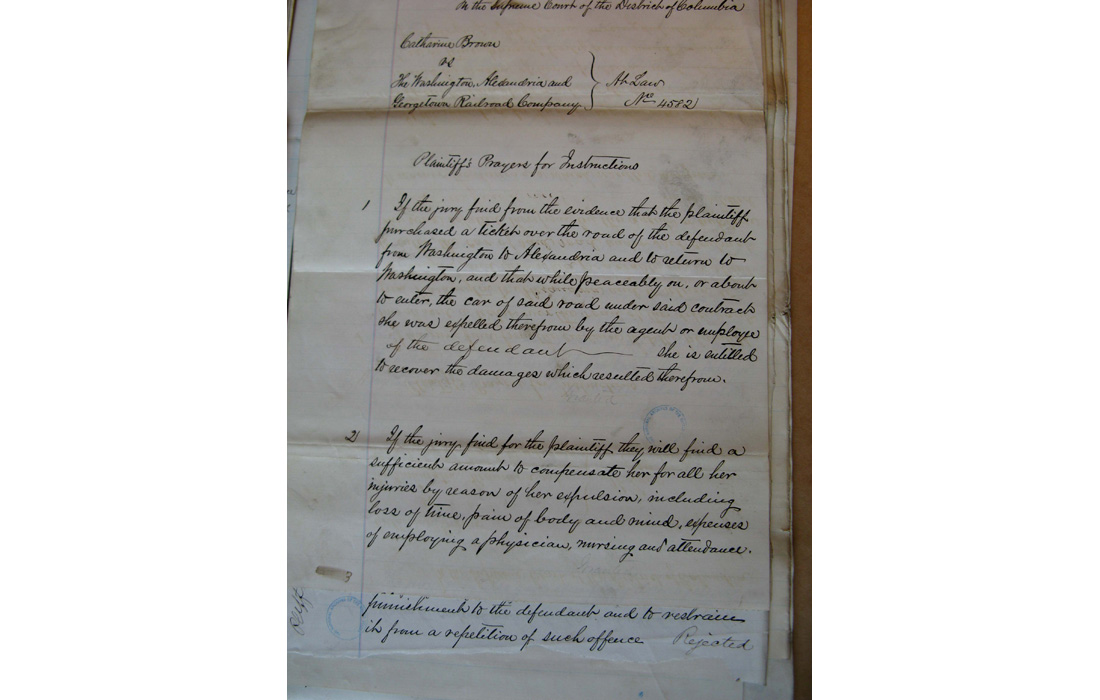 In the Supreme Court of the District of Columbia
Catharine Brown
vs
The Washington, Alexandria and
Georgetown Railroad Company
At Law
No 4582
Plaintiff's Prayers for Instructions
1 If the jury find from the evidence that the plaintiff
purchased a ticket over the road of the defendant
from Washington to Alexandria and to return to
Washington, and that while peaceably on, or about
to enter, the car of said road under said contract
she was expelled therefrom by the agent or employe
of the defendant she is entitled
to recover the damages which resulted therefrom.
Granted
2 If the jury find for the plaintiff they will find a
sufficient amount to compensate her for all her
injuries by reason of her expulsion, including
loss of time, pain of body and mind, expenses
of employing a physician, nursing and attendance.
3
punishment to the defendant and to restrain
it from a repetition of such offence Rejected